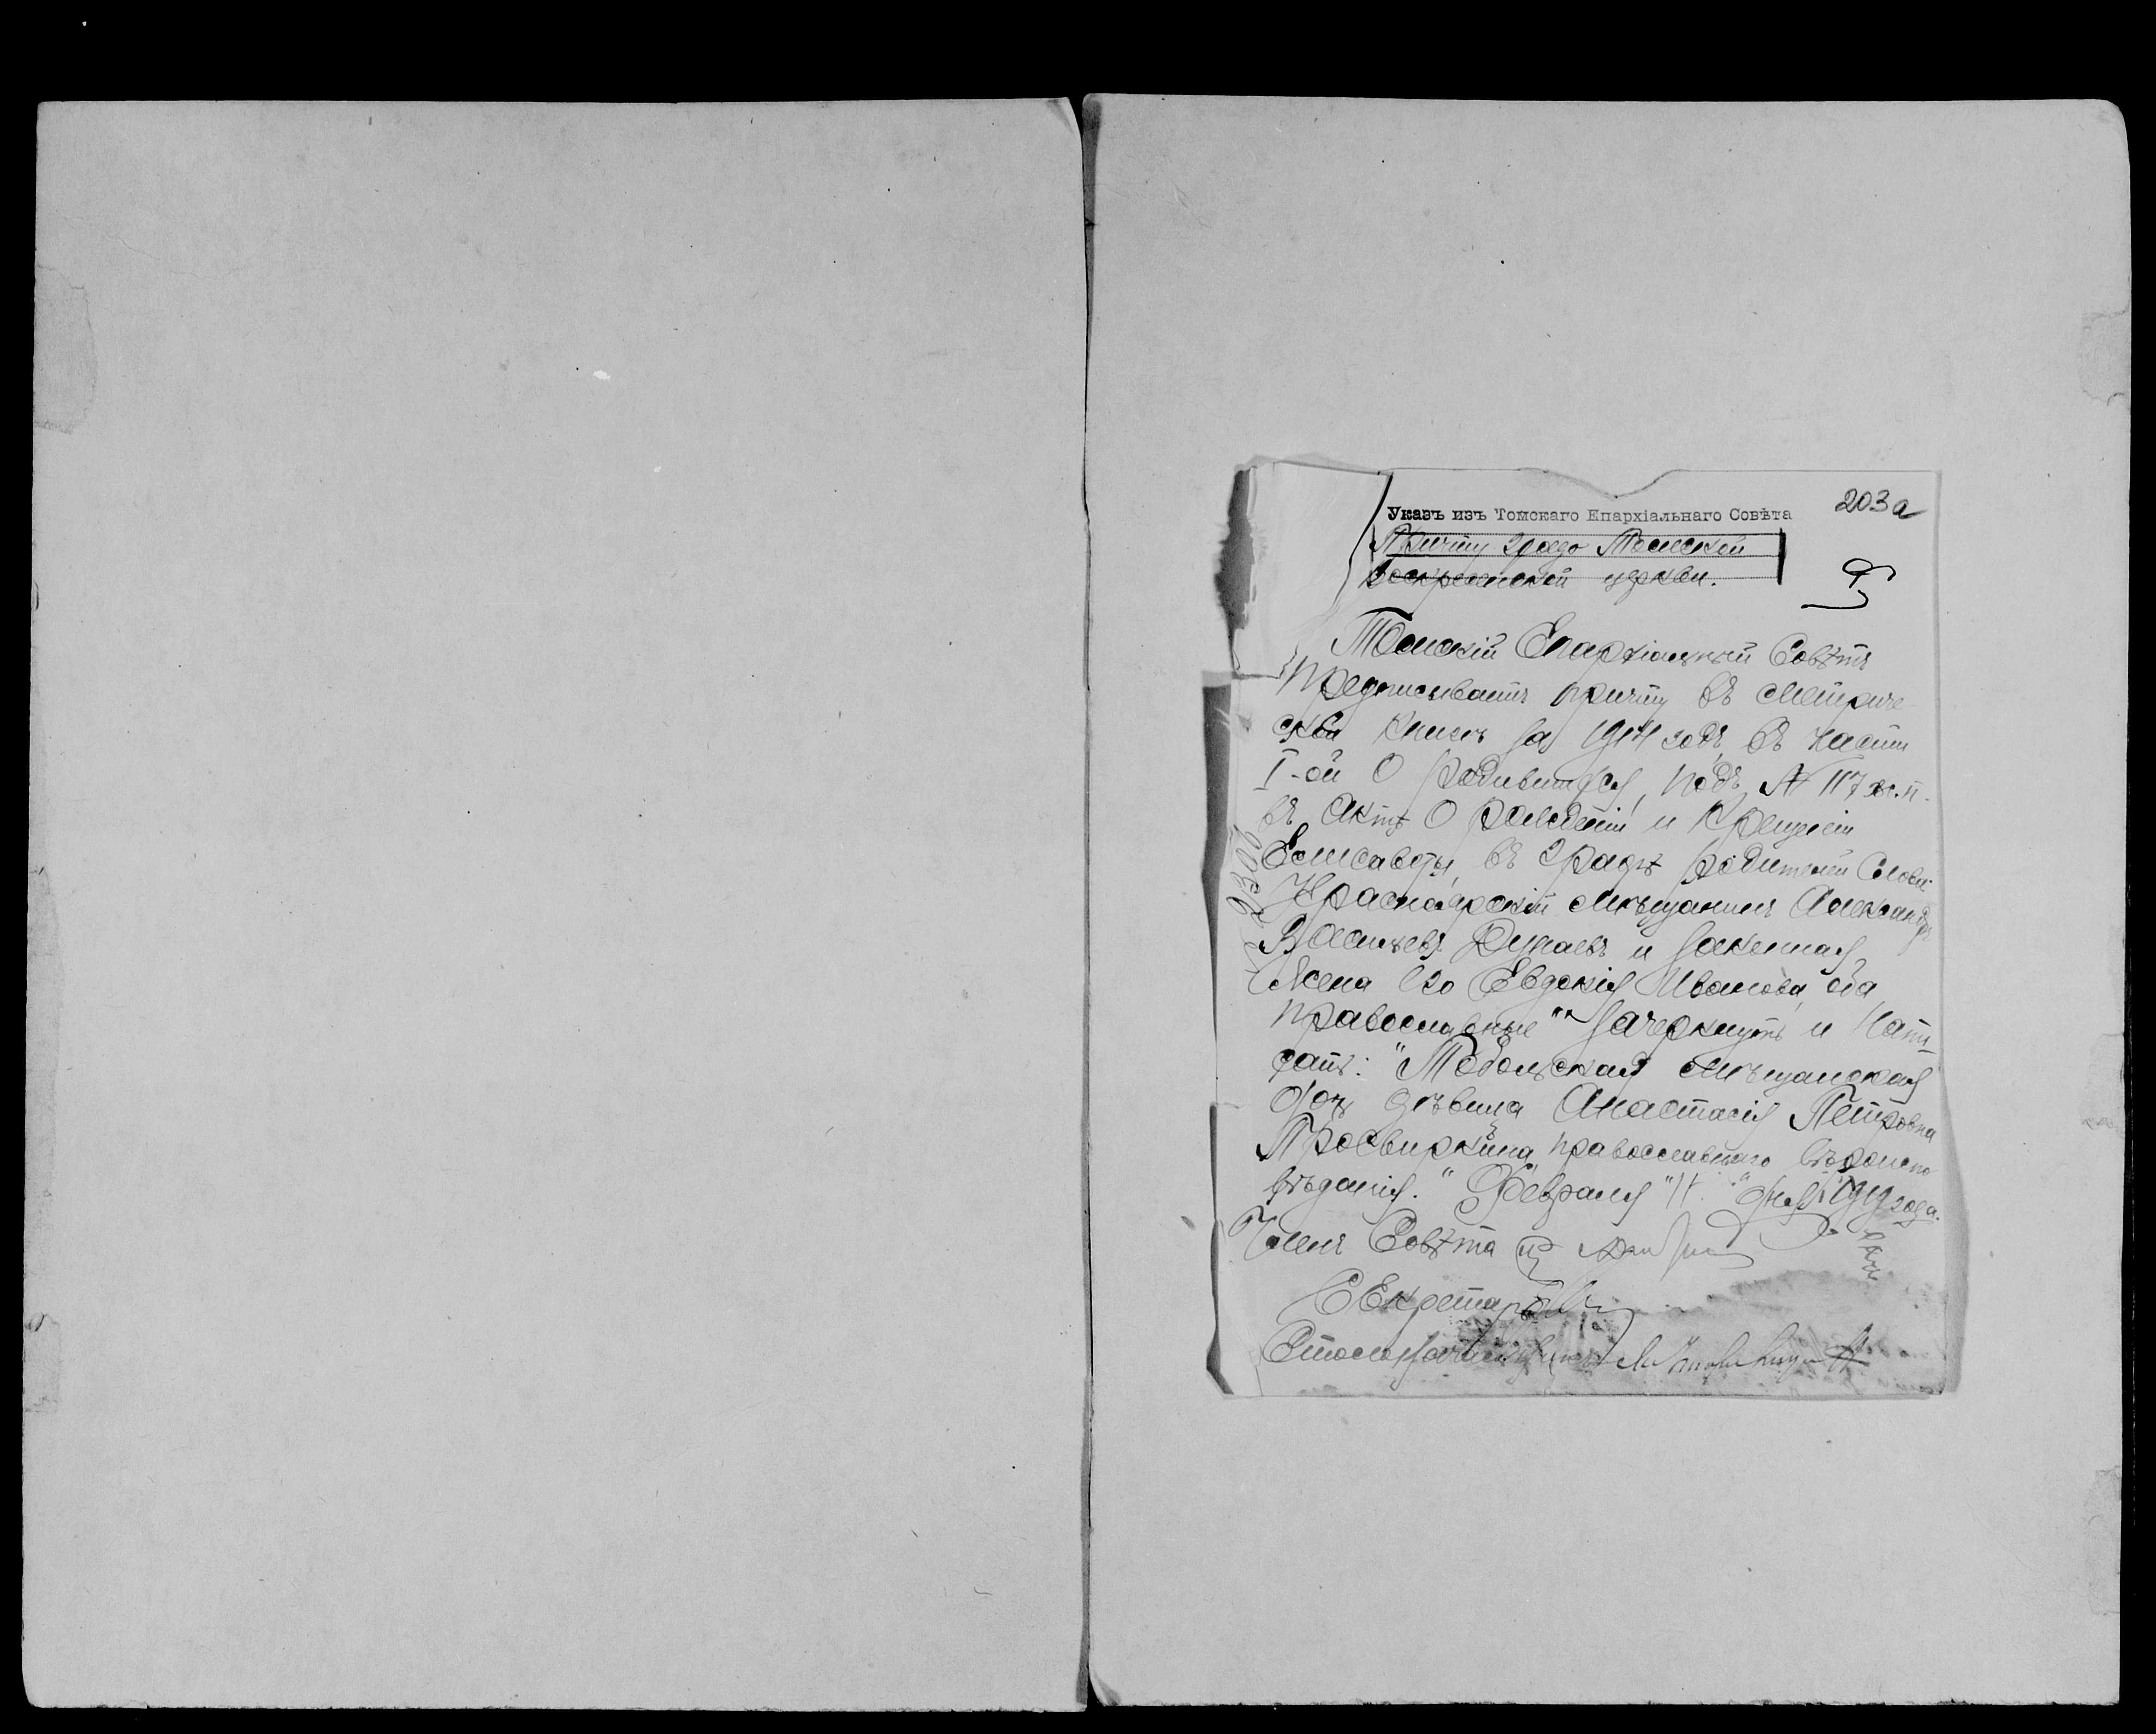 203а
Указъ изъ Томскаго Епархіальнаго Совѣта
Причту градо Томской
Воскресенской церкви.
Томскій Епархіальный Совѣтъ
предписываетъ причту въ метриче
ской книгѣ за 1914 годъ, въ части
I-ой О родившихся, подъ № 117 ж.п.
въ актѣ О рожденіи и Крещеніи
Елисаветы, въ графѣ родителей Слова:
Красноярскій мѣщанинъ Александръ
Васильевъ Дунаевъ и законная
жена его Евдокія Иванова, оба
православные" зачеркнуть и напи
сать: "Тобольская мѣщанская
дочь дѣвица Анастасія Петровна
Просвиркина, православнаго вѣроиспо
вѣданія." Февраля "11" дня 1919 года.
Членъ Совѣта
Секретарь
Столоначальникъ
2300